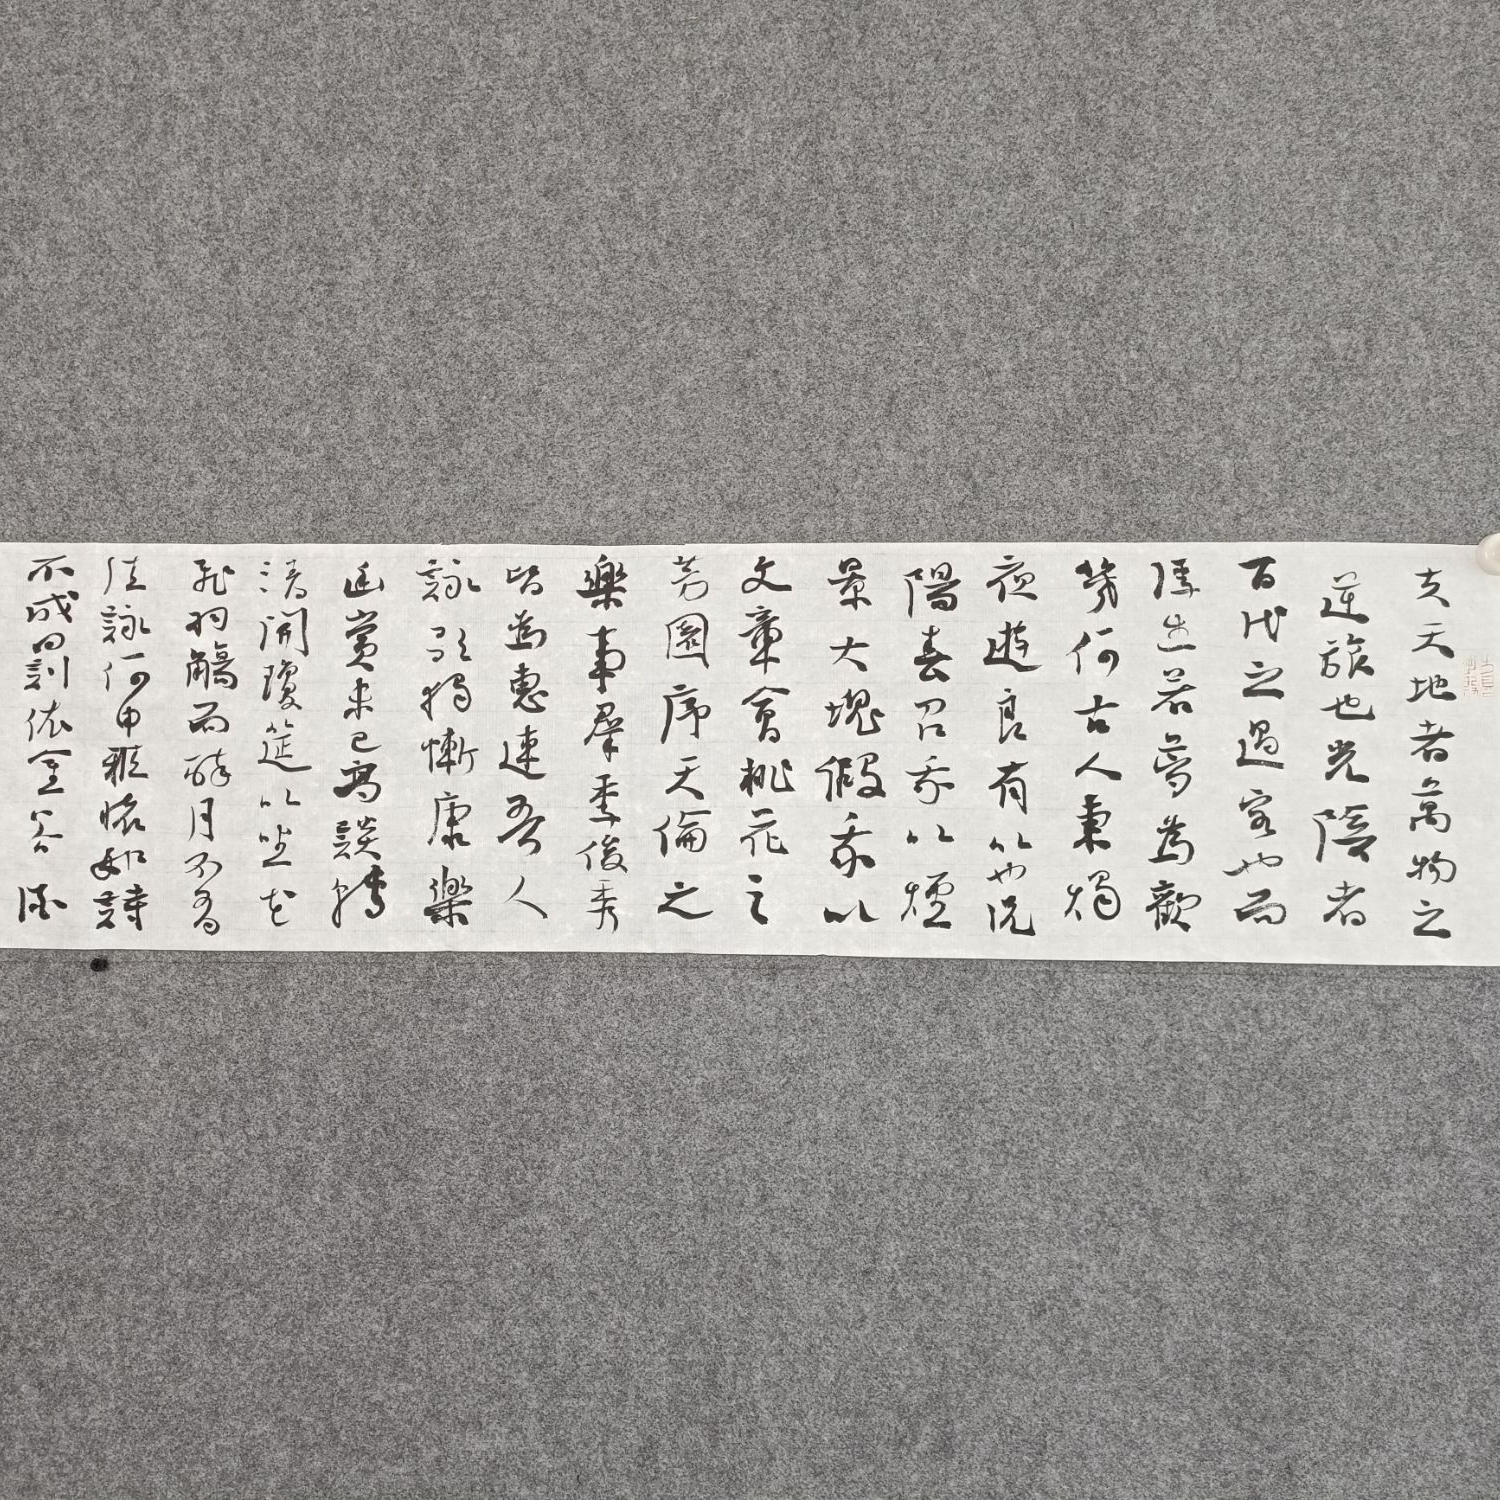 夫天地者萬物之
逆旅也光陰者
百代之過客也而
浮生若夢為歡
幾何古人秉燭
夜遊良有以也況
陽春召我以煙
景大塊假我以
文章會桃花之
芳園序天倫之
樂事群季俊秀
皆為惠連吾人
詠歌獨慚康樂
幽賞未已高談轉
清開瓊筵以坐花
飛羽觴而醉月不有
佳詠何申雅懷如詩
不成罰依金谷酒